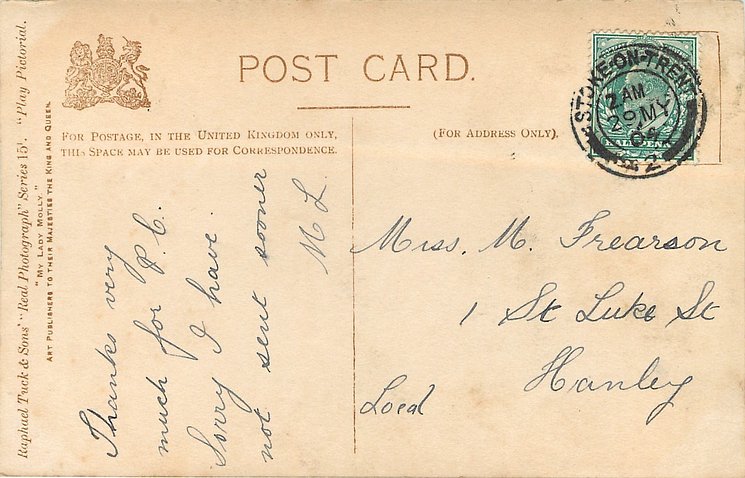 Raphael Tuck & Sons' "Real Photograph" Series 151. "Play Pictorial.
"MY LADY MOLLY."
ART PUBLISHERS TO THEIR MAJESTIES THE KING AND QUEEN.
POST CARD.
FOR POSTAGE, IN THE UNITED KINGDOM ONLY,
THIS SPACE MAY BE USED FOR CORRESPONDENCE.
(FOR ADDRESS ONLY).
STOKE-ON-TRENT
2 AM
29 MY
04
2
HALFPENNY
Thanks very
much for p.c.
Sorry I have
not sent sooner
M L
Miss. M. Frearson
1 St Luke St
Hanley
Local